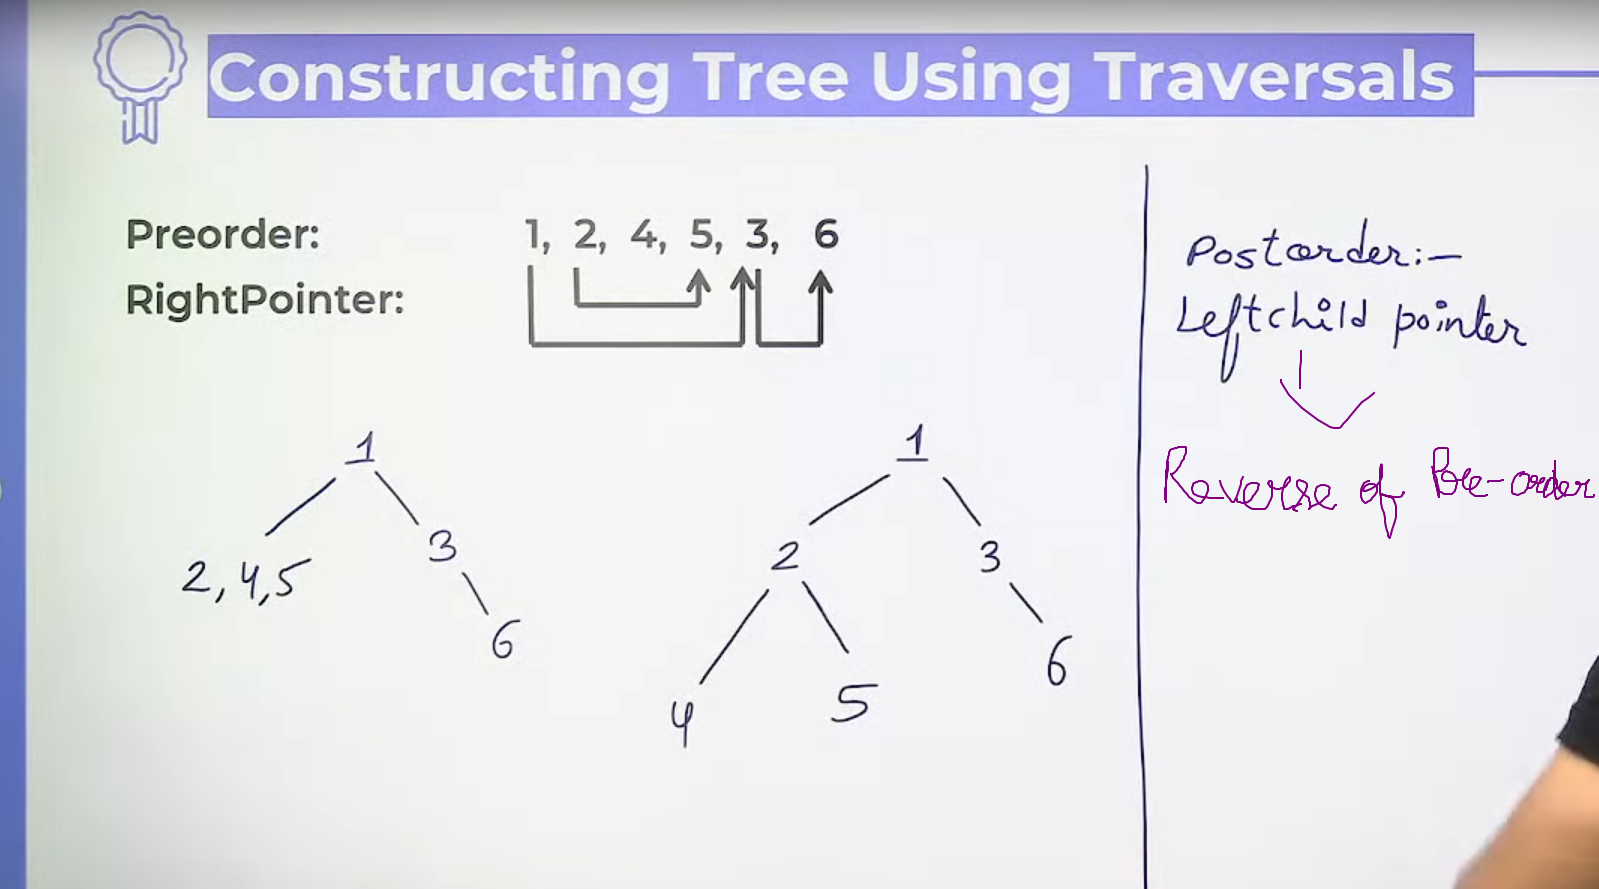 Constructing Tree Using Traversals
Preorder: 1, 2, 4, 5, 3, 6
RightPointer:
1
2, 4, 5
3
6
1
2
3
4
5
6
Postorder:-
Leftchild pointer
Reverse of Pre-order